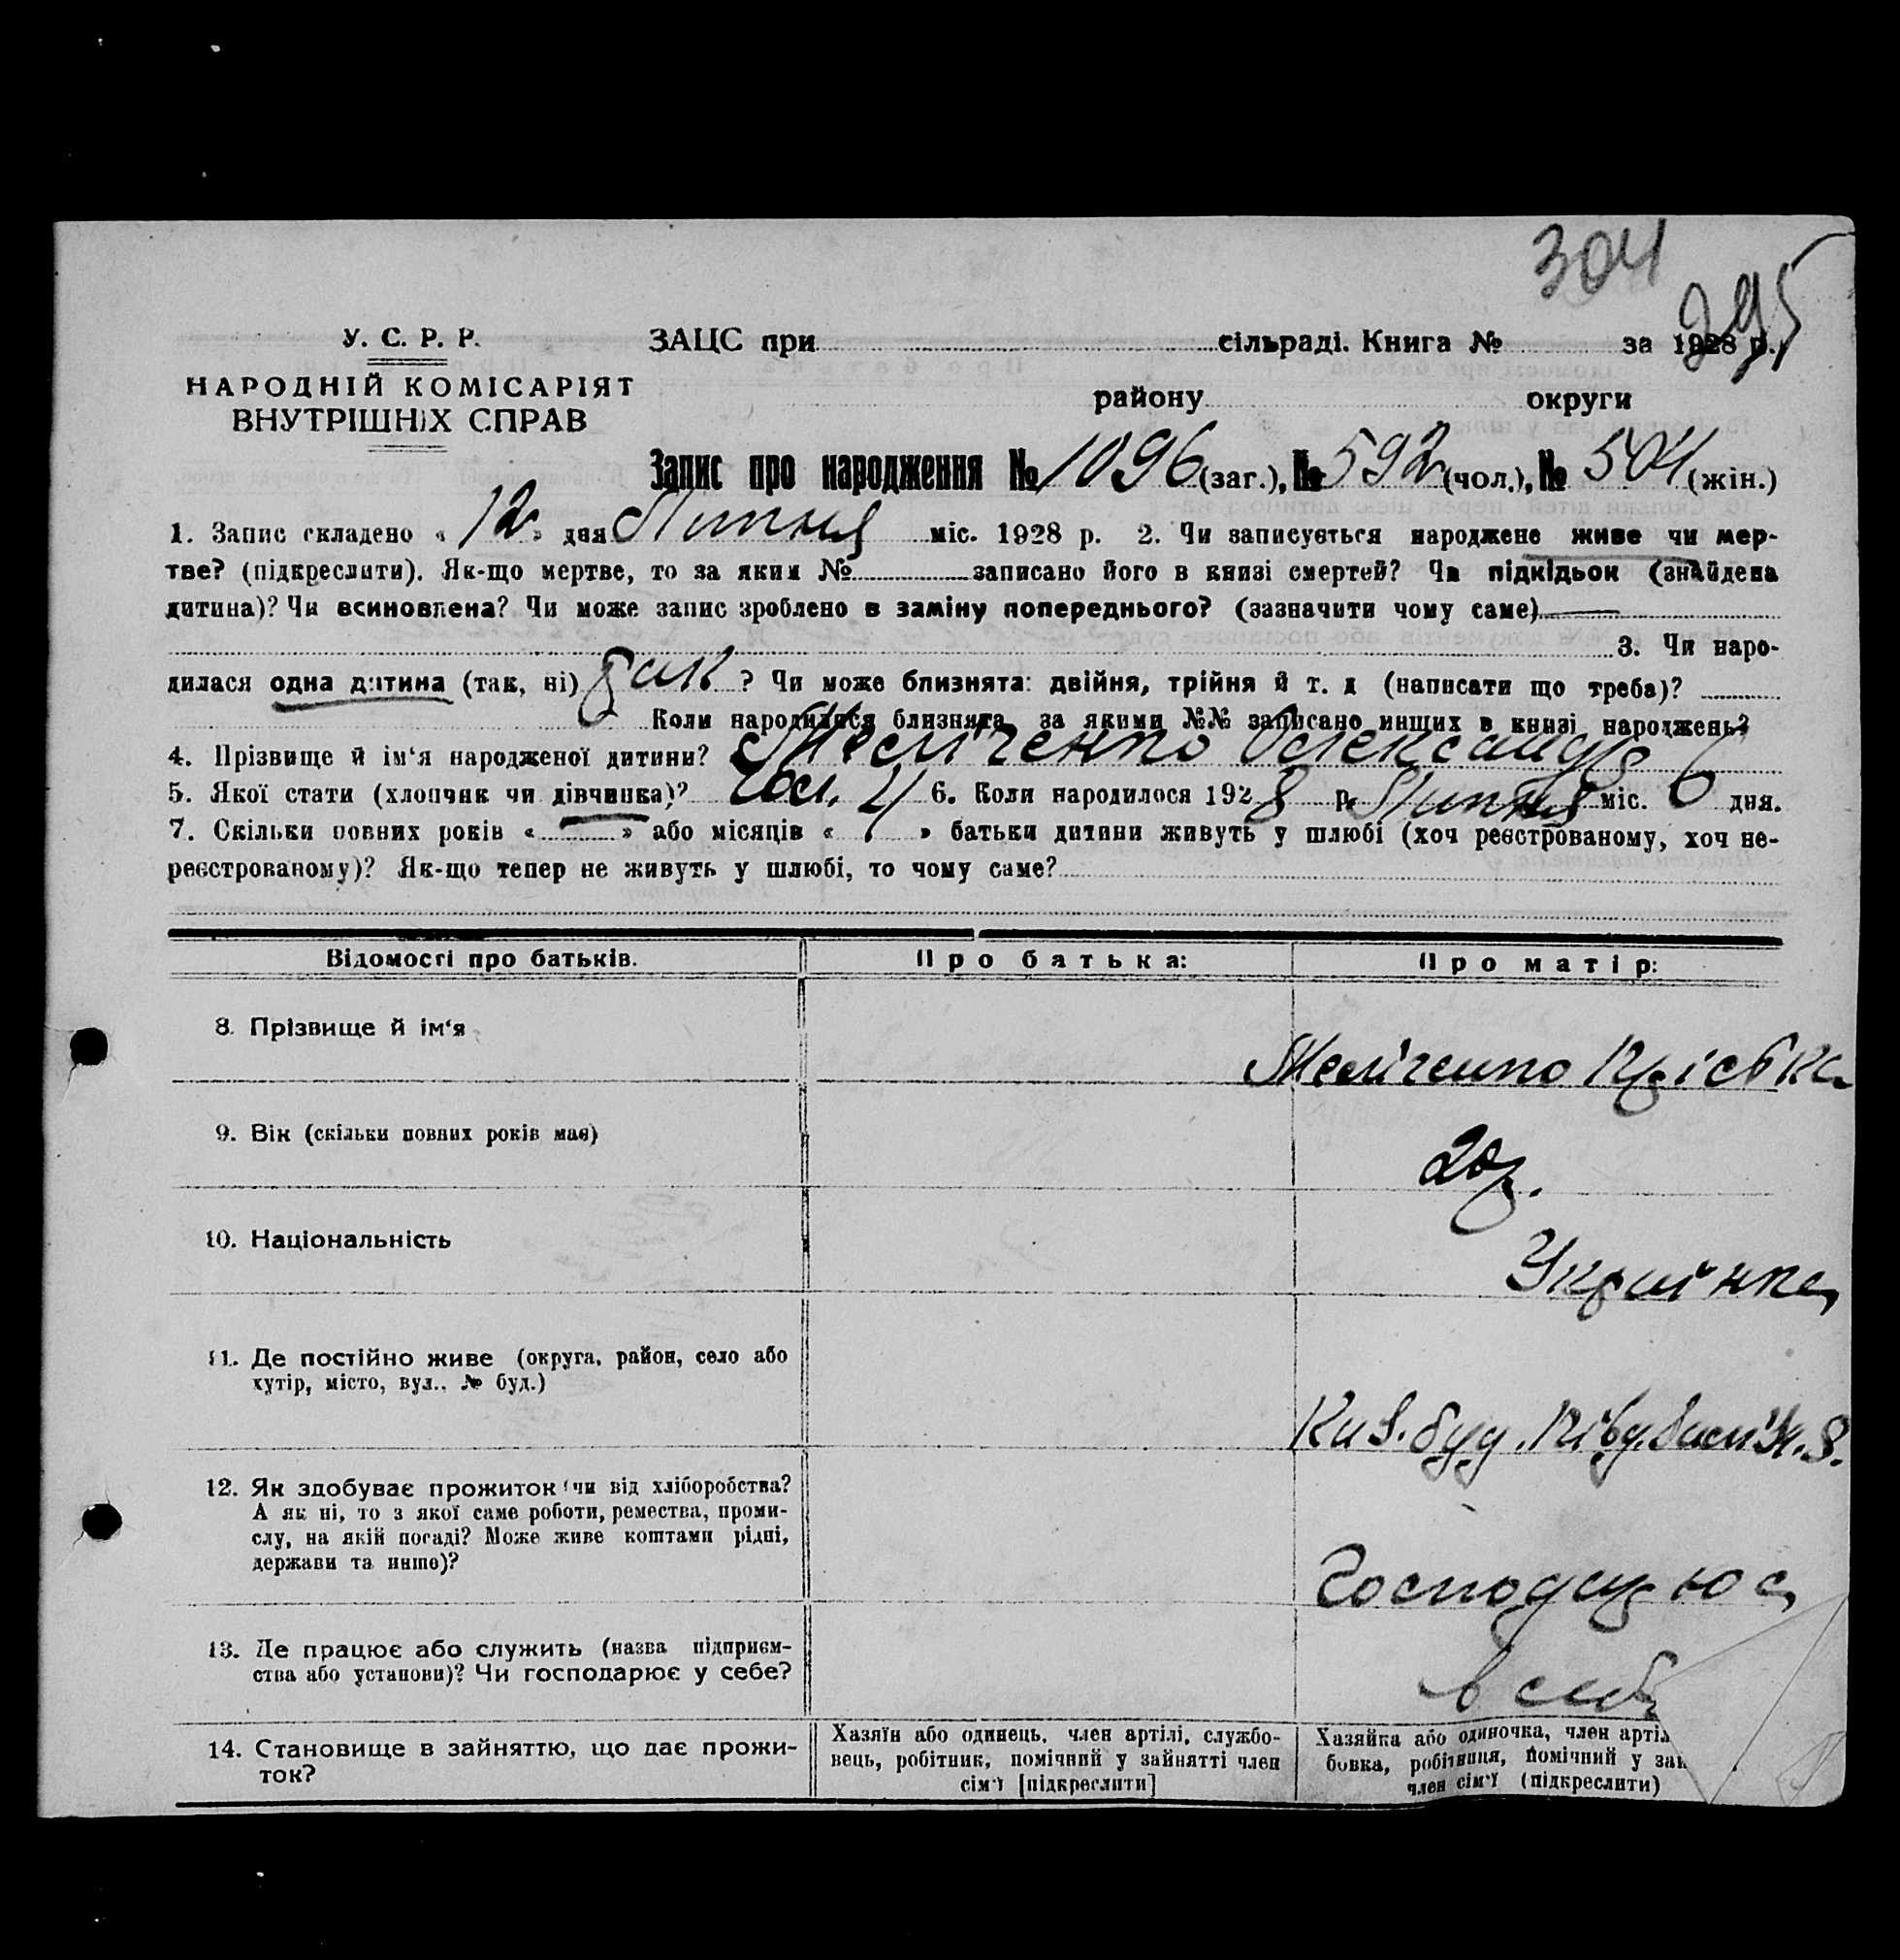 304
295
У. С. Р. Р. ЗАЦС при сільраді. Книга № за 1928 р.
НАРОДНІЙ КОМІСАРІЯТ
ВНУТРІШНІХ СПРАВ
району округи
Запис про народження № 1096 (заг.), № 592 (чол.), № 504 (жін.)
1. Запис складено « 12 » дня Липня міс. 1928 р. 2. Чи записується народжене живе чи мер-
тве? (підкреслити). Як-що мертве, то за яким № записано його в книзі смертей? Чи підкідьок (знайдена
дитина)? Чи всиновлена? Чи може запис зроблено в заміну попереднього? (зазначити чому саме)
3. Чи наро-
дилася одна дитина (так, ні) так ? Чи може близнята: двійня, трійня й т. д (написати що треба)?
Коли народилися близнята, за якими №№ записано инших в книзі народжень?
4. Прізвище й ім'я народженої дитини? Олександр
5. Якої стати (хлопчик чи дівчинка)? 6. Коли народилося 1928 р. Липня міс. 6 дня.
7. Скільки повних років « » або місяців « » батьки дитини живуть у шлюбі (хоч реєстрованому, хоч не-
реєстрованому)? Як-що тепер не живуть у шлюбі, то чому саме?
Відомості про батьків. Про батька: Про матір:
8. Прізвище й ім'я
9. Вік (скільки повних років має) 20 р.
10. Національність Українка
11. Де постійно живе (округа, район, село або
хутір, місто, вул.. № буд.)
буд.
12. Як здобуває прожиток (чи від хліборобства?
А як ні, то з якої саме роботи, ремества, проми-
слу, на якій посаді? Може живе коштами рідні,
держави та инше)?
Господарює
13. Де працює або служить (назва підприєм-
ства або установи)? Чи господарює у себе?
в себе
14. Становище в зайняттю, що дає прожи-
ток?
Хазяїн або одинець, член артілі, службо-
вець, робітник, помічний у зайнятті член
сім'ї [підкреслити]
Хазяйка або одиночка, член артіл
бовка, робітниця, помічний у зай
член сім'ї (підкреслити)